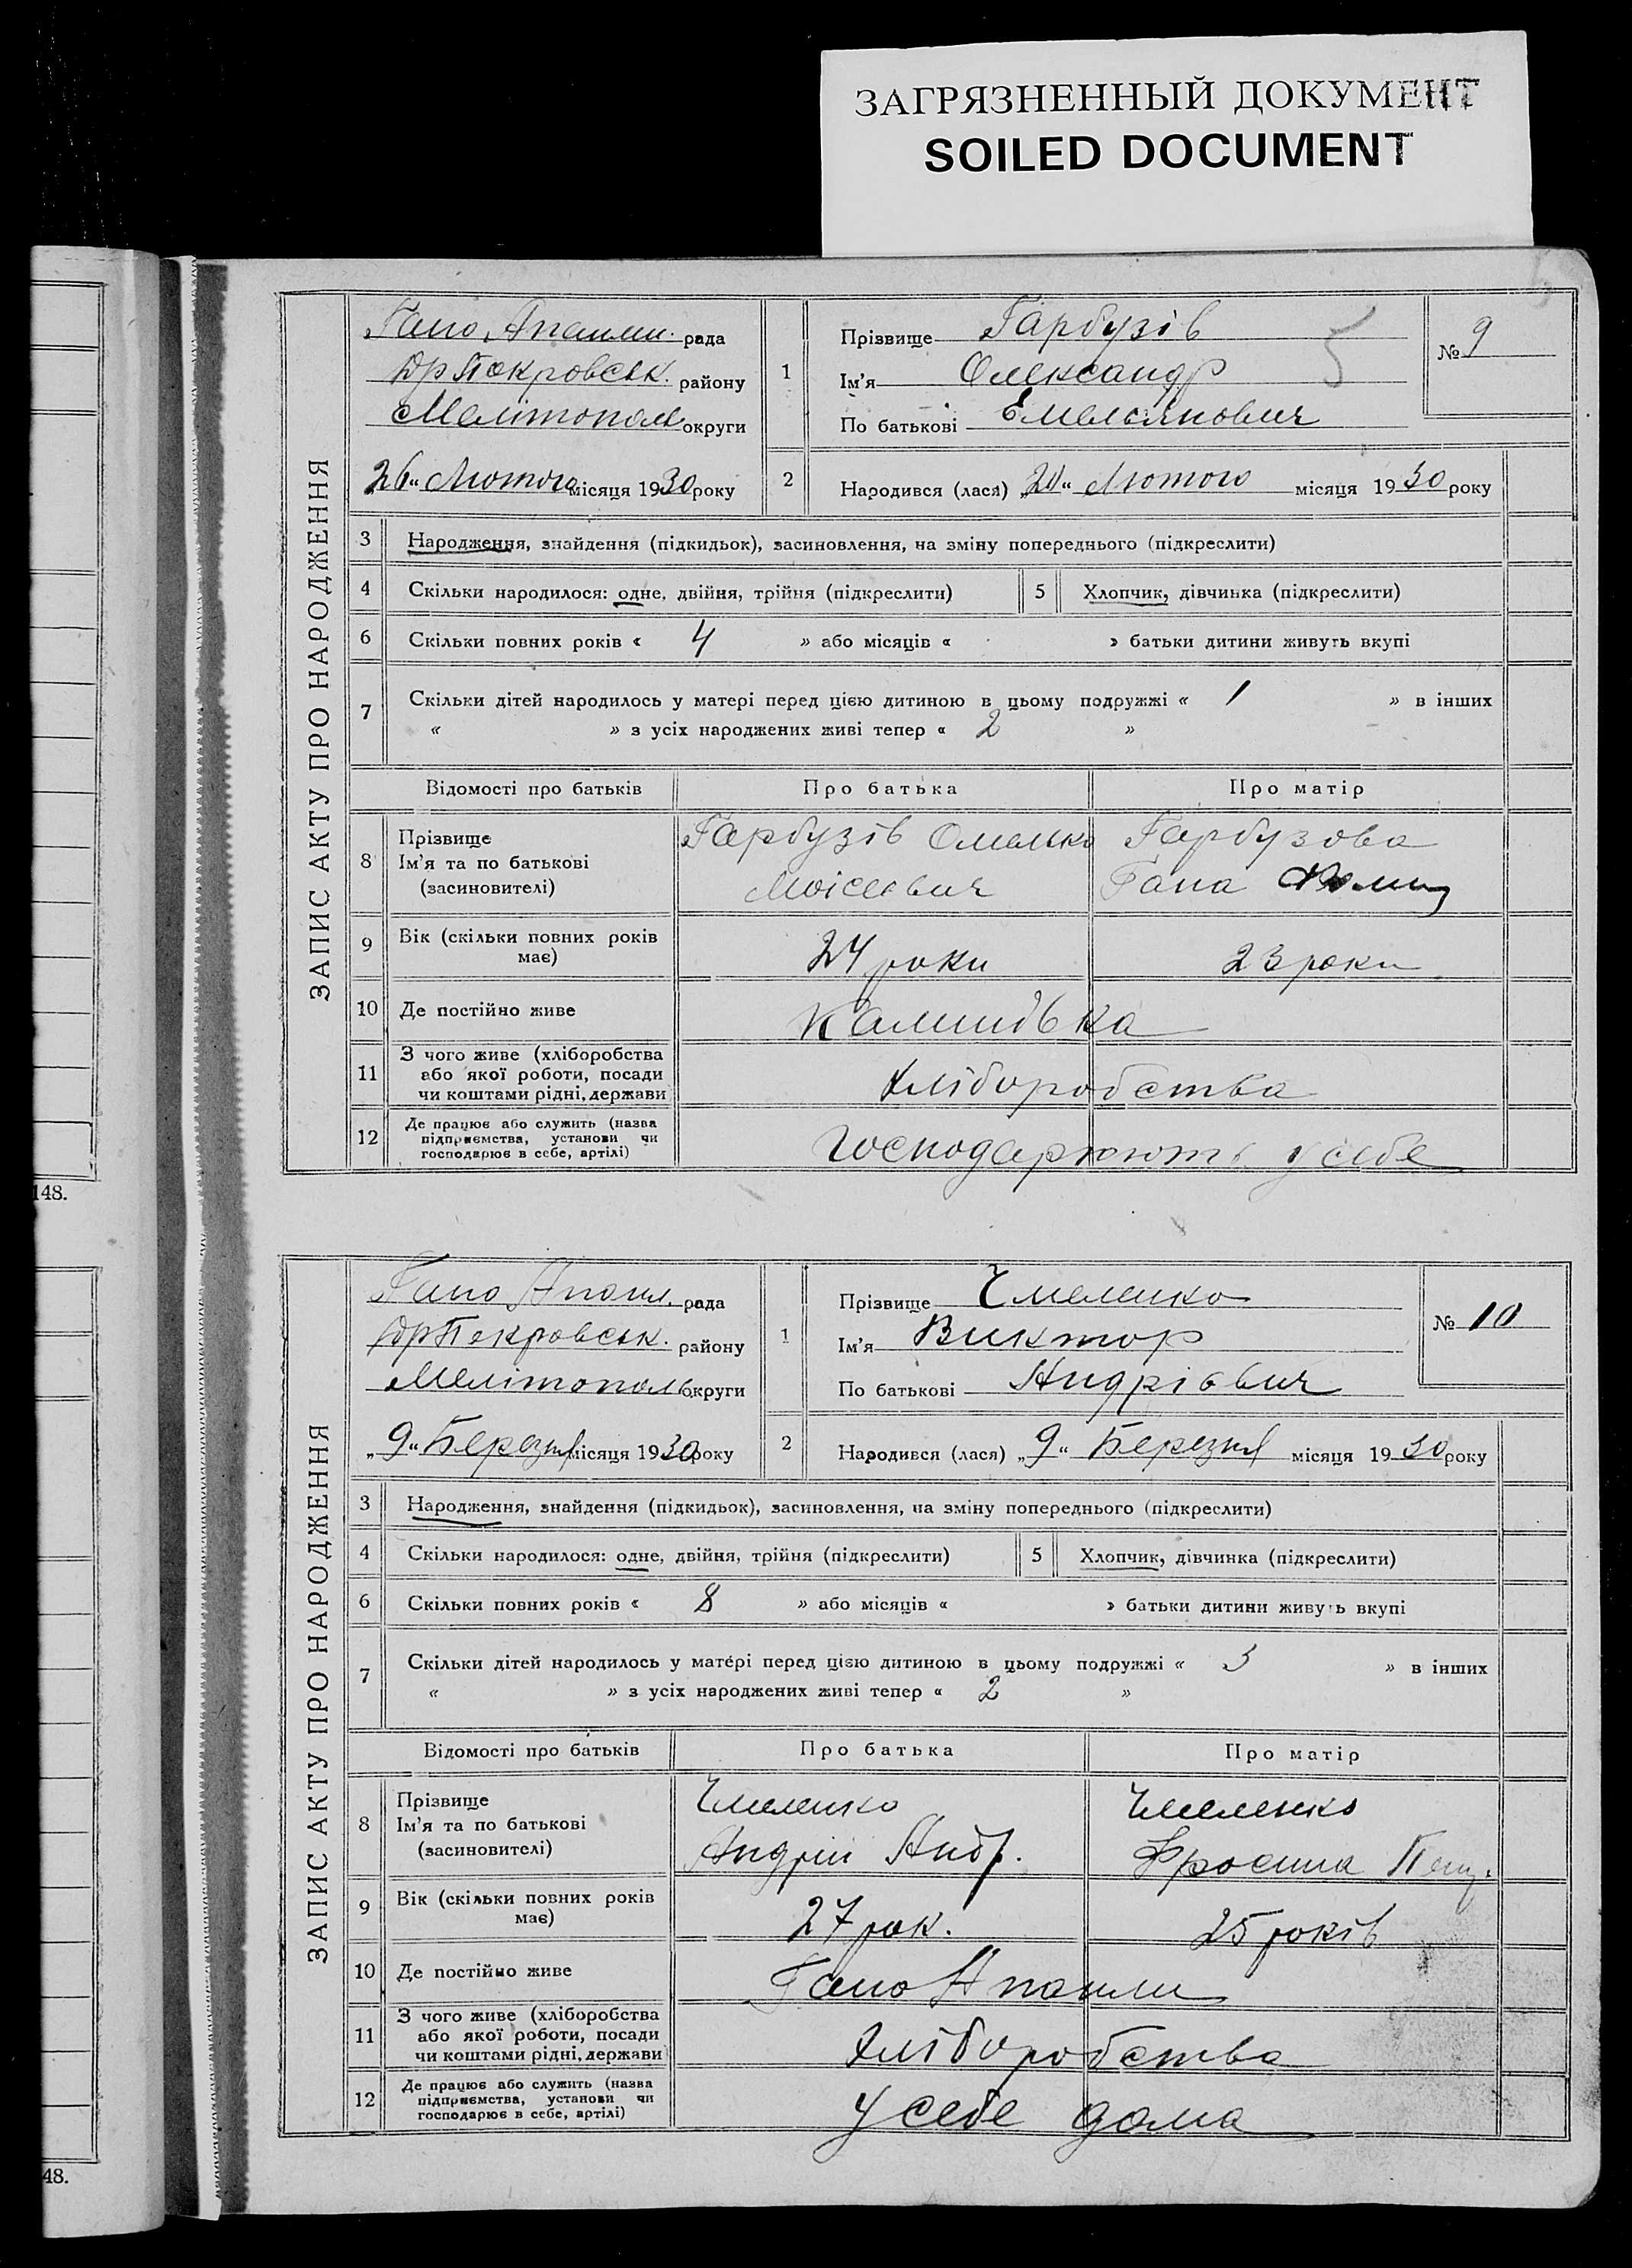 ЗАГРЯЗНЕННЫЙ ДОКУМЕНТ
SOILED DOCUMENT
148.
48.
ЗАПИС АКТУ ПРО НАРОДЖЕННЯ
Гано рада
Прізвище Гарбузів
№ 9
Покровськ. району
1
Ім'я Олександр
5
Мелітополь округи
По батькові Емельянович
26 „ Лютого місяця 1930 року
2
Народився (лася) „20 „ Лютого місяця 1930 року
3 Народження, знайдення (підкидьок), засиновлення, на зміну попереднього (підкреслити)
4 Скільки народилося: одне, двійня, трійня (підкреслити) 5 Хлопчик, дівчинка (підкреслити)
6 Скільки повних років « 4 » або місяців « » батьки дитини живуть вкупі
7 Скільки дітей народилось у матері перед цією дитиною в цьому подружжі « 1 » в інших
« » з усіх народжених живі тепер « 2 »
Відомості про батьків Про батька Про матір
8 Прізвище
Ім'я та по батькові
(засиновителі)
Гарбузів Омелько
Моісеєвич
Гарбузова
Гана
9 Вік (скільки повних років
має)
24 роки 23 роки
10 Де постійно живе
11 З чого живе (хліборобства
або якої роботи, посади
чи коштами рідні, держави
хліборобства
12 Де працює або служить (назва
підприємства, установи чи
господарює в себе, артілі)
господарюють у себе
ЗАПИС АКТУ ПРО НАРОДЖЕННЯ
Гано рада
Прізвище Чмеленко
№ 10
Покровськ. району
1
Ім'я Виктор
Мелітополь округи
По батькові Андрієвич
„ 9 „ Березня місяця 1930 року
2
Народився (лася) „9 „ Березня місяця 1930 року
3 Народження, знайдення (підкидьок), засиновлення, на зміну попереднього (підкреслити)
4 Скільки народилося: одне, двійня, трійня (підкреслити) 5 Хлопчик, дівчинка (підкреслити)
6 Скільки повних років « 8 » або місяців « » батьки дитини живуть вкупі
7 Скільки дітей народилось у матері перед цією дитиною в цьому подружжі « 3 » в інших
« » з усіх народжених живі тепер « 2 »
Відомості про батьків Про батька Про матір
8 Прізвище
Ім'я та по батькові
(засиновителі)
Чмеленко
Андрій Андр.
Чмеленко
Фросина
9 Вік (скільки повних років
має)
27 рок. 25 років
10 Де постійно живе
Гано
11 З чого живе (хліборобства
або якої роботи, посади
чи коштами рідні, держави
хліборобства
12 Де працює або служить (назва
підприємства, установи чи
господарює в себе, артілі)
у себе дома